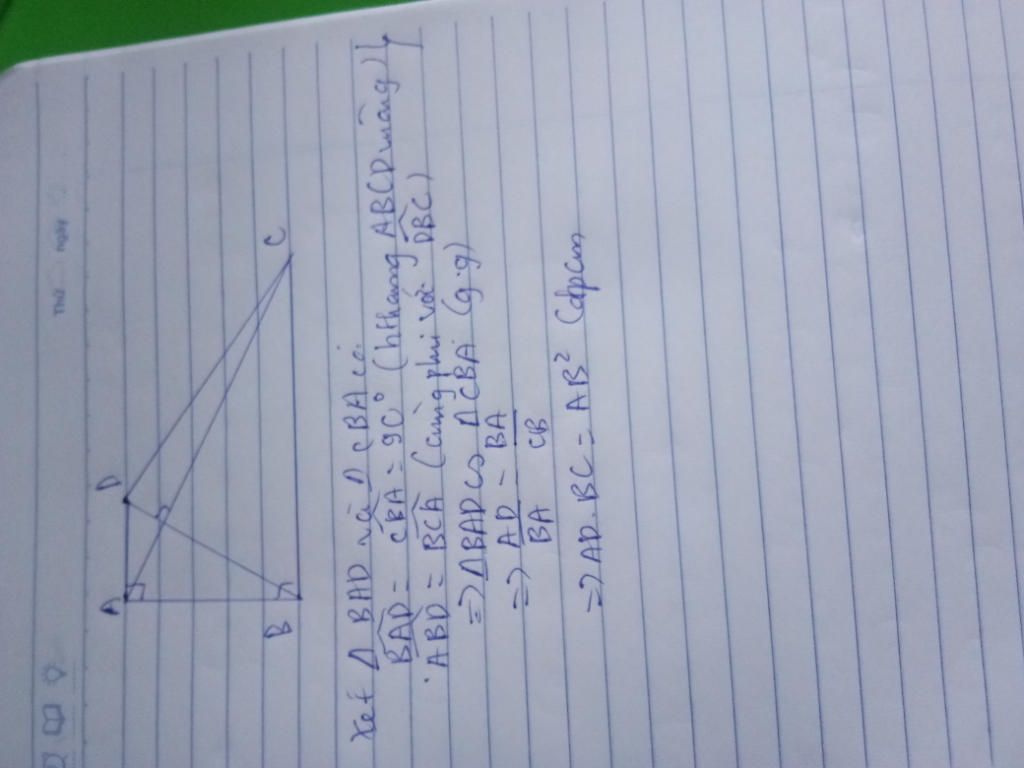 Thứ ngày
A D
B C
Xét Δ BAD và Δ CBA có:
BAD = CBA = 90° (hthang ABCD vuông)
ABD = BCA (cùng phụ với DBC)
=> ΔBAD ∽ ΔCBA (g.g)
=> AD/BA = BA/CB
=> AD.BC = AB² (đpcm